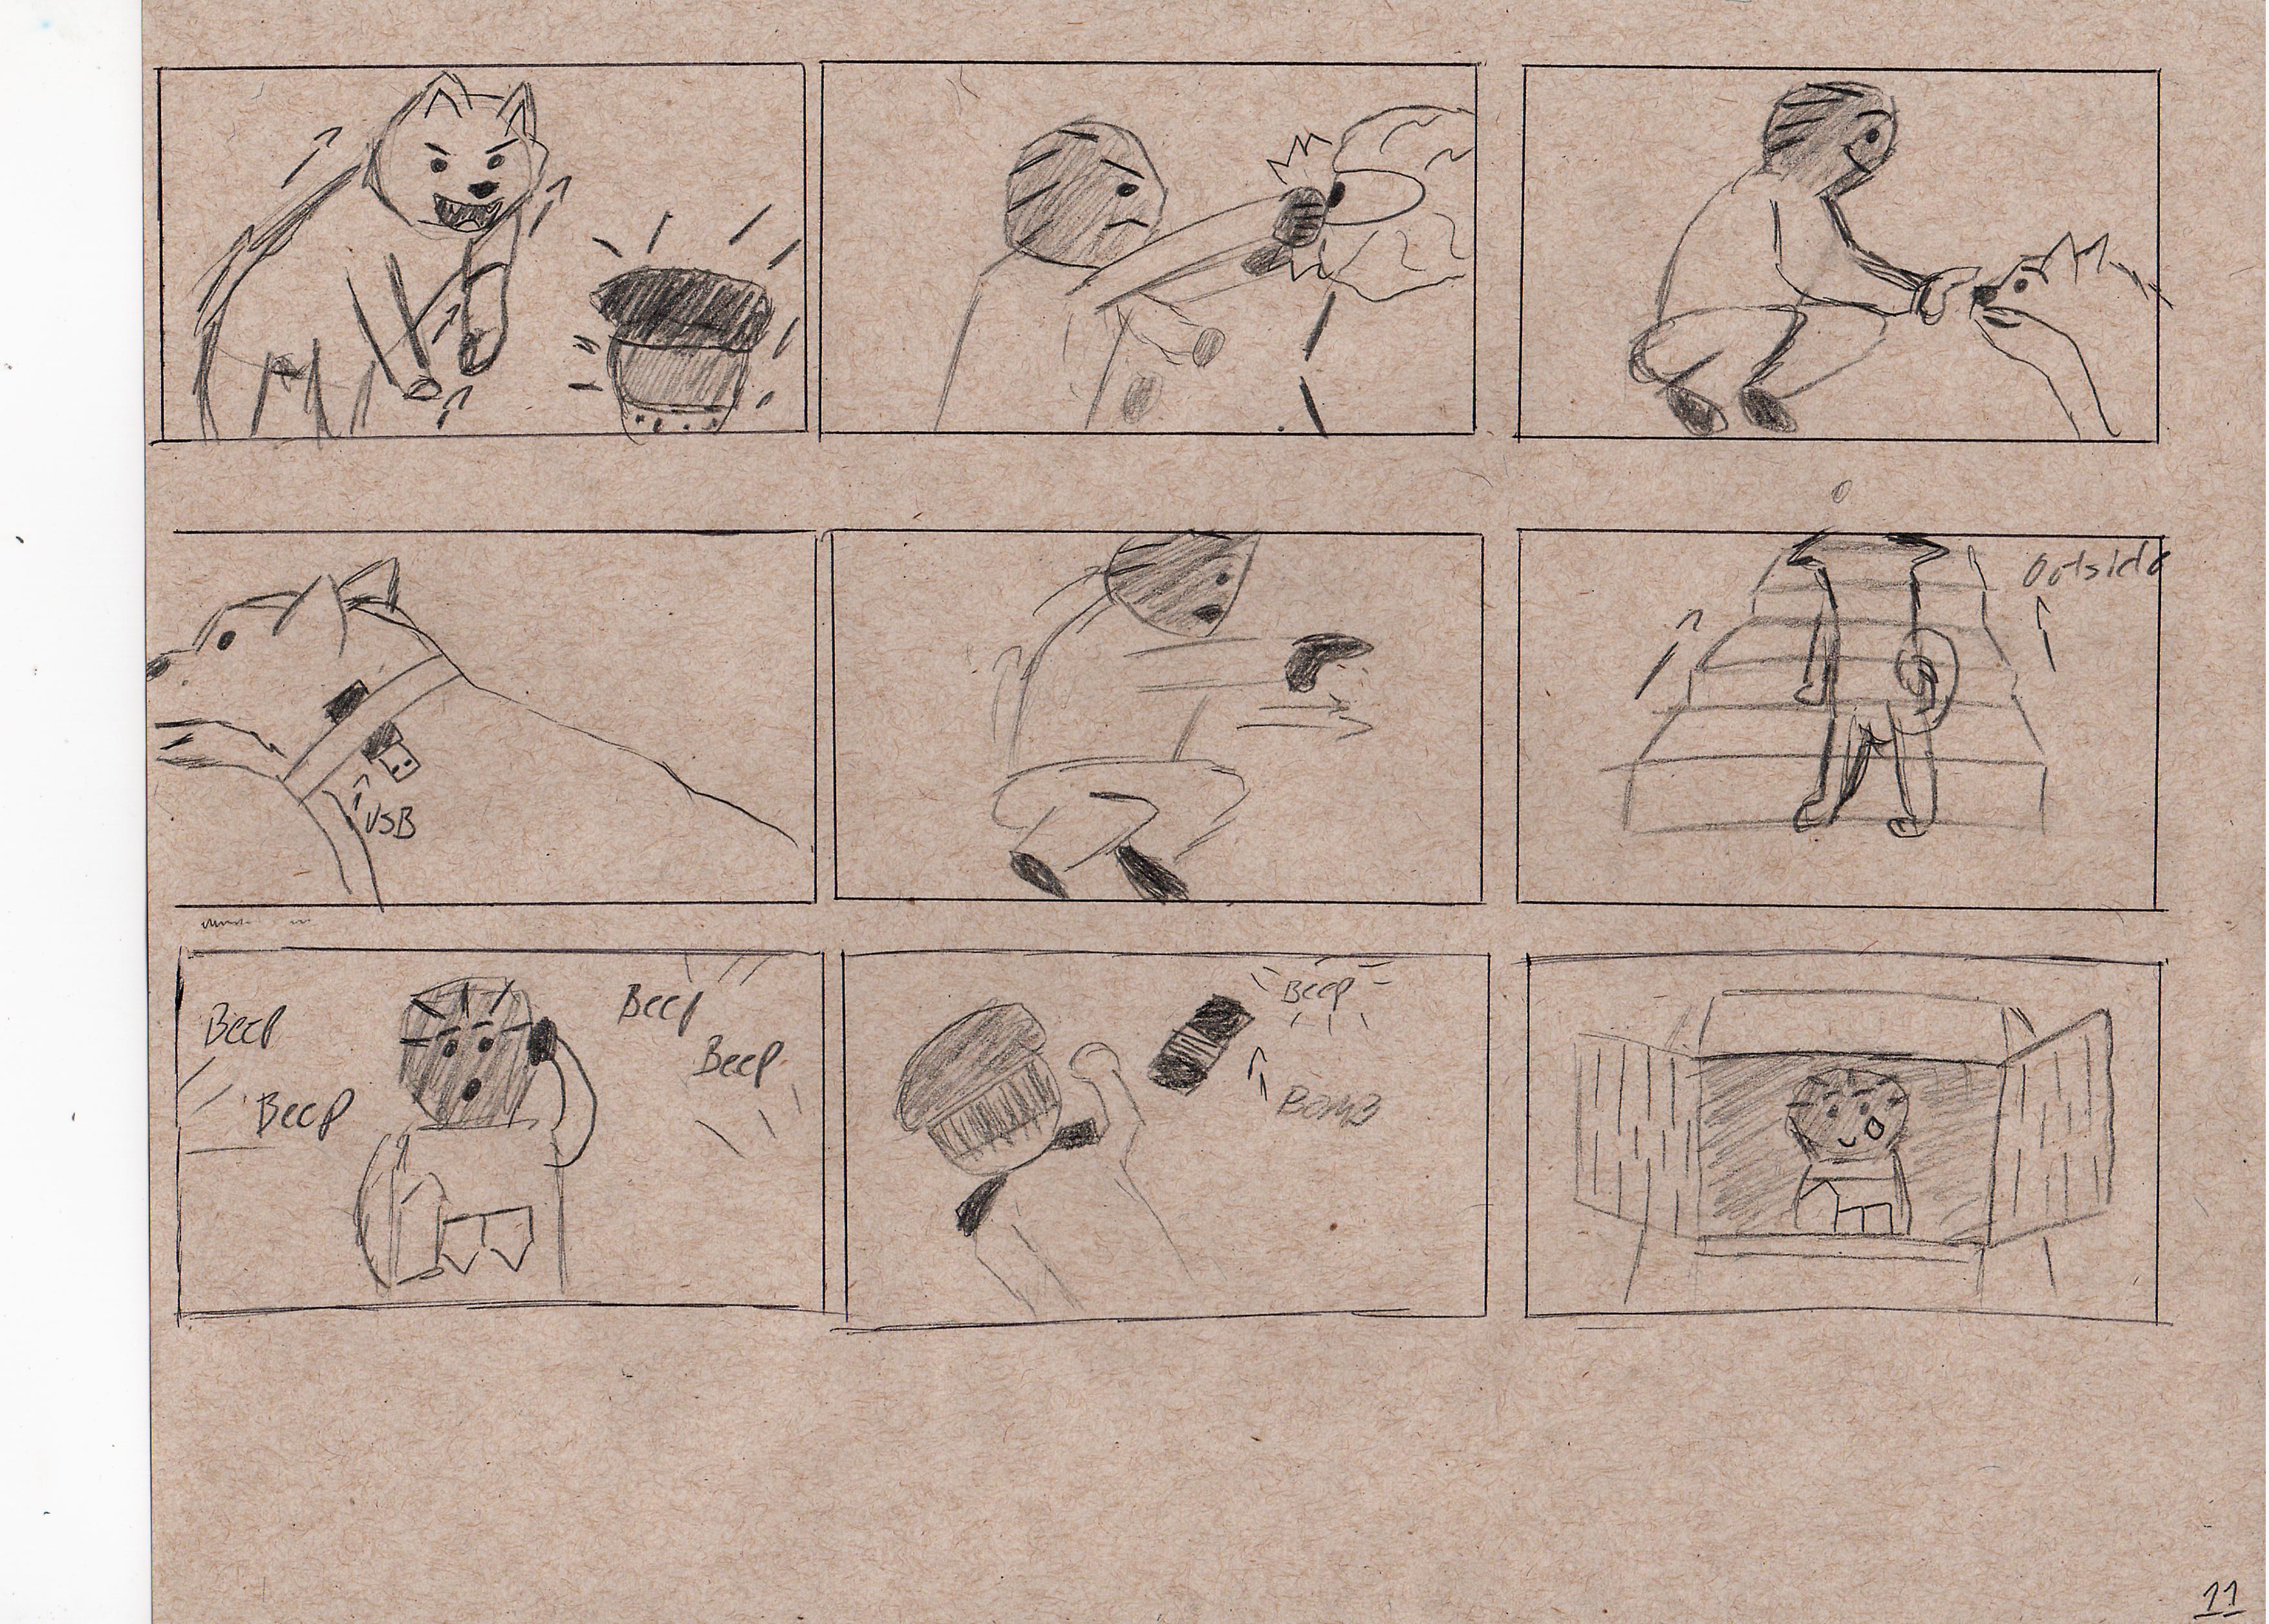 Outside
USB
Beep
Beep
Beep
Beep
Beep
BOMB
11